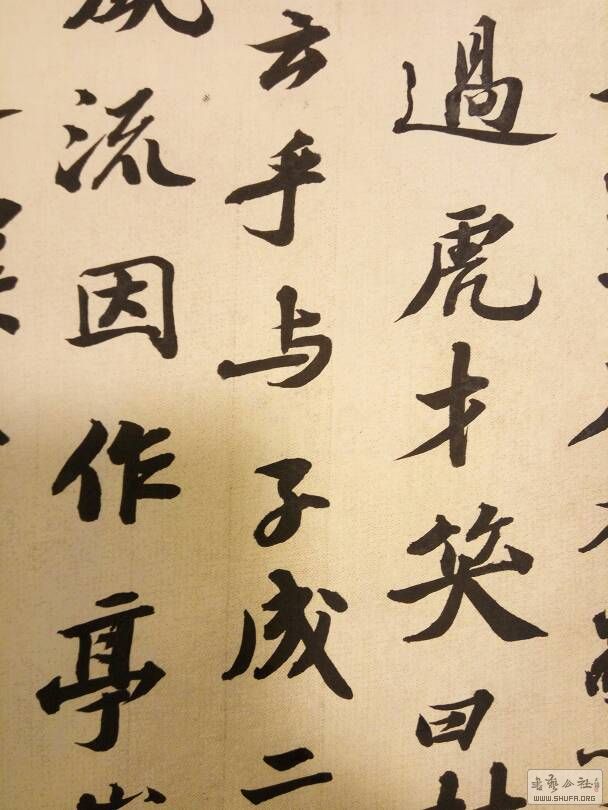 過虎才笑曰
云乎与子成二
風流因作亭
書藝公社
WWW.SHUFA.ORG